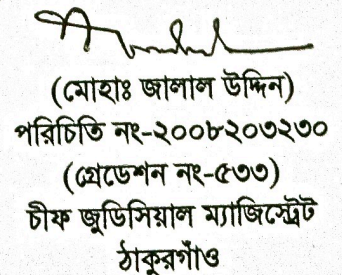 (মোহাঃ জালাল উদ্দিন)
পরিচিতি নং-২০০৮২০৩২৩০
(গ্রেডেশন নং-৫৩৩)
চীফ জুডিসিয়াল ম্যাজিস্ট্রেট
ঠাকুরগাঁও